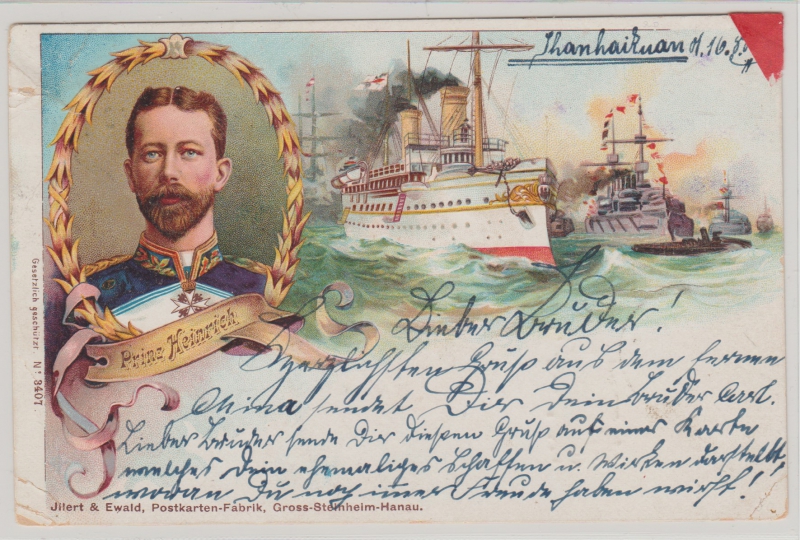 Shanhaikuan d. 16.8.
Prinz Heinrich.
Lieber Bruder!
Herzlichsten Gruß aus dem fernen
China sendet Dir Dein Bruder Carl.
Lieber Bruder sende Dir diesen Gruß auf einer Karte
welches Dein ehemaliges Schaffen u. Wirken darstellt,
woran Du noch immer Freude haben wirst!
Gesetzlich geschützt No 3407
Jllert & Ewald, Postkarten-Fabrik, Gross-Steinheim-Hanau.